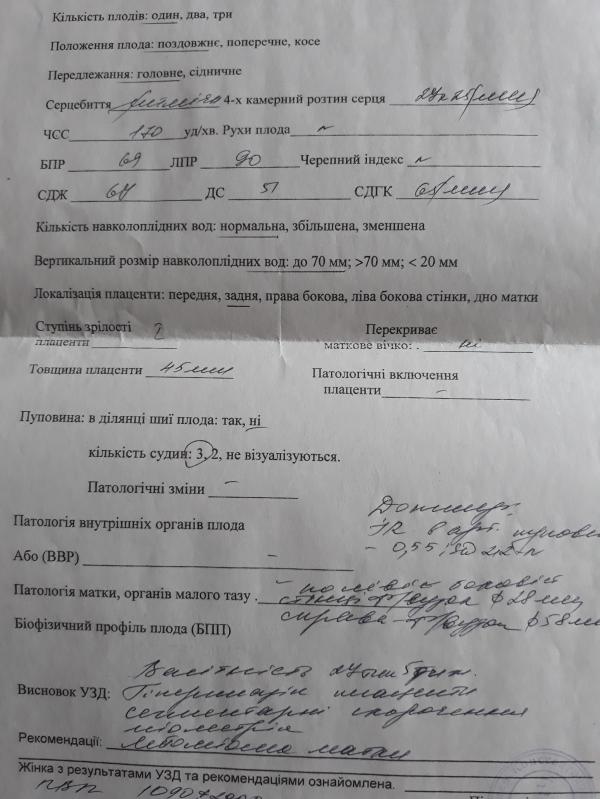 Кількість плодів: один, два, три
Положення плода: поздовжнє, поперечне, косе
Передлежання: головне, сіднично
Серцебиття ритмічно 4-х камерний розтин серця
ЧСС 170 уд/хв. Рухи плода ~
БПР 69 ЛПР 90 Черепний індекс ~
СДЖ ДС 51 СДГК мм
Кількість навколоплідних вод: нормальна, збільшена, зменшена
Вертикальний розмір навколоплідних вод: до 70 мм; >70 мм; < 20 мм
Локалізація плаценти: передня, задня, права бокова, ліва бокова стінки, дно матки
Ступінь зрілості Перекриває
плаценти 2 маткове вічко: . ні
Товщина плаценти 45мм Патологічні включення
плаценти -
Пуповина: в ділянці шиї плода: так, ні
кількість судин: 3, 2, не візуалізуються.
Патологічні зміни -
Патологія внутрішніх органів плода
Доплер:
ІР в арт. пупов
- 0,55;
Або (ВВР) -
Патологія матки, органів малого тазу . - по лівій боковій
стінці ф 28мм
Біофізичний профіль плода (БПП) справа ф 58мм
Вагітність 27тиж 5дн.
Висновок УЗД: Гіперплазія плаценти
сегментарні скорочення
міометрія
Рекомендації: Лейоміома матки
Жінка з результатами УЗД та рекомендаціями ознайомлена.